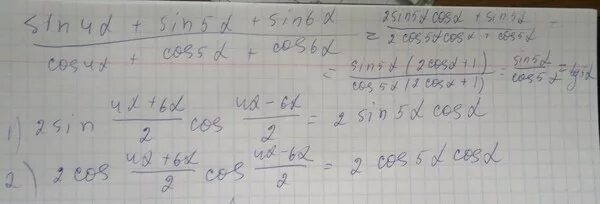 (sin4α + sin5α + sin6α)/(cos4α + cos5α + cos6α) = (2sin5αcosα + sin5α)/(2cos5αcosα + cos5α) =
= (sin5α(2cosα+1))/(cos5α(2cosα+1)) = sin5α/cos5α = tg5α
1) 2sin (4α+6α)/2 cos (4α-6α)/2 = 2 sin5α cosα
2) 2cos (4α+6α)/2 cos (4α-6α)/2 = 2 cos5α cosα